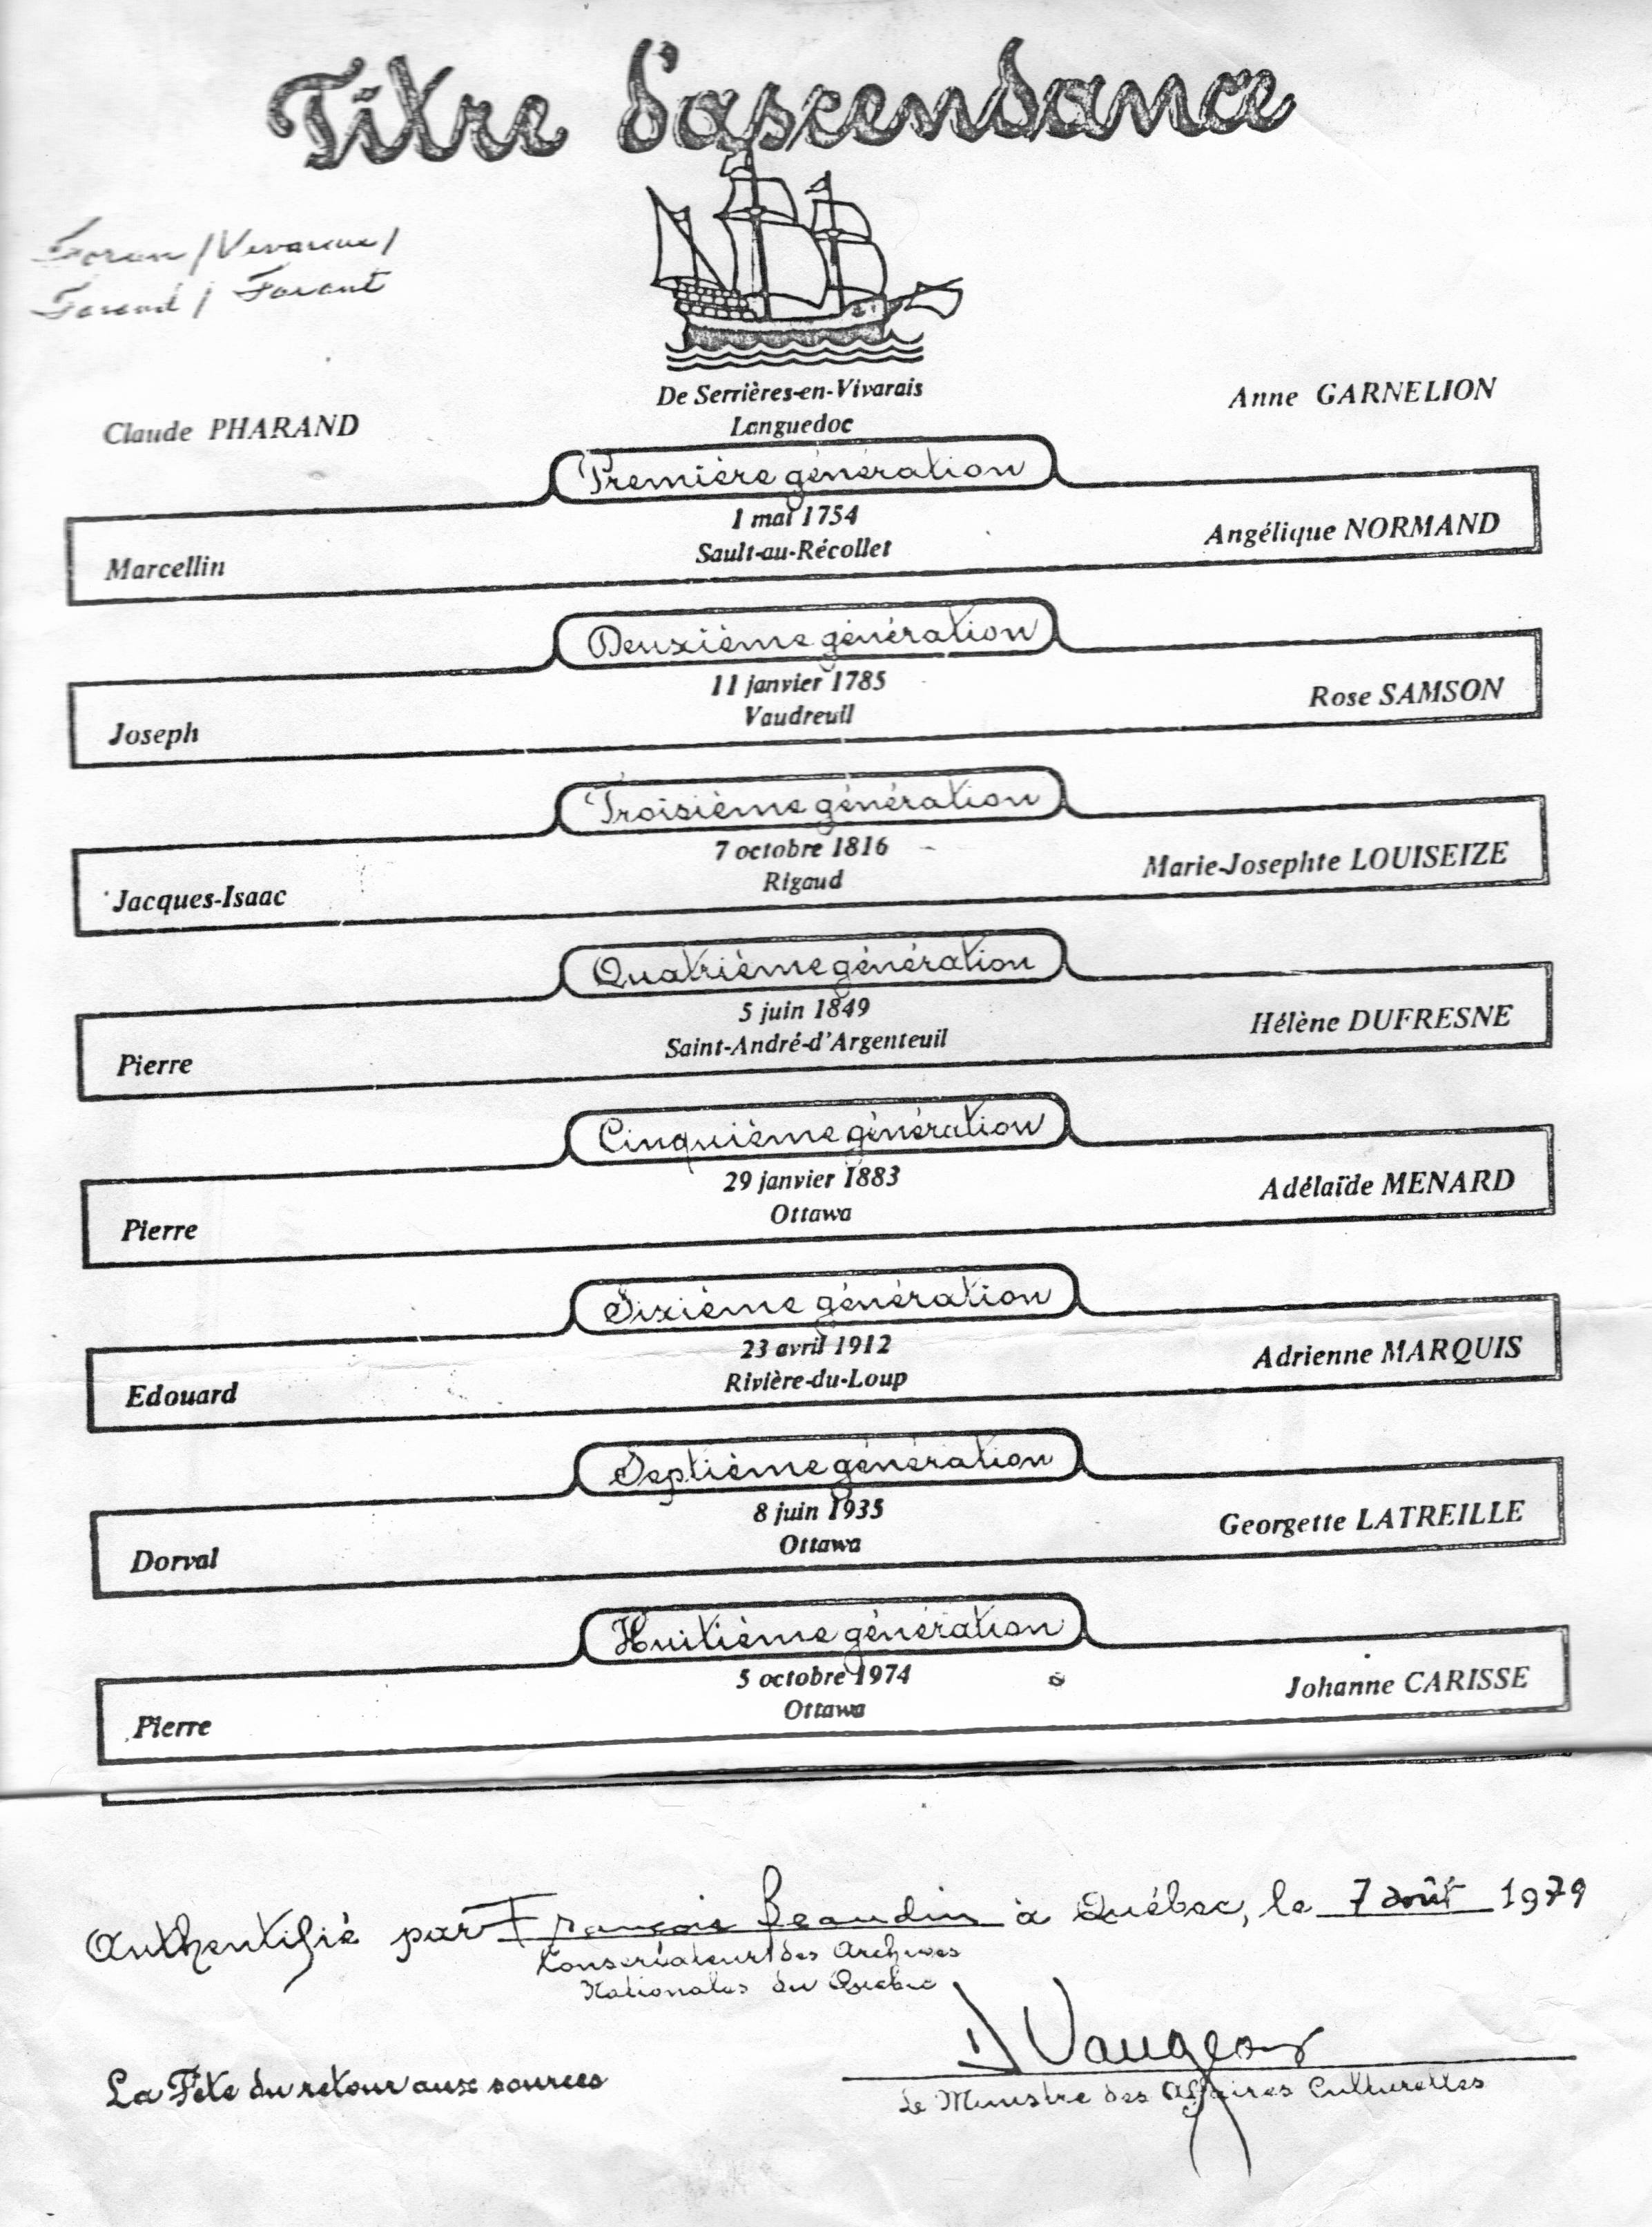 Titre d'ascendance
Foran / Vivarais /
Farand / Farant
De Serrières-en-Vivarais
Languedoc
Claude PHARAND
Anne GARNELION
Première génération
1 mai 1754
Sault-au-Récollet
Marcellin
Angélique NORMAND
Deuxième génération
11 janvier 1785
Vaudreuil
Joseph
Rose SAMSON
Troisième génération
7 octobre 1816
Rigaud
Jacques-Isaac
Marie-Josephte LOUISEIZE
Quatrième génération
5 juin 1849
Saint-André-d'Argenteuil
Pierre
Hélène DUFRESNE
Cinquième génération
29 janvier 1883
Ottawa
Pierre
Adélaïde MENARD
Sixième génération
23 avril 1912
Rivière-du-Loup
Edouard
Adrienne MARQUIS
Septième génération
8 juin 1935
Ottawa
Dorval
Georgette LATREILLE
Huitième génération
5 octobre 1974
Ottawa
Pierre
Johanne CARISSE
Authentifié par François Beaudin à Québec, le 7 août 1979
Conservateur des Archives
Nationales du Québec
D Vaugeois
La Fête du retour aux sources
Le Ministre des Affaires Culturelles